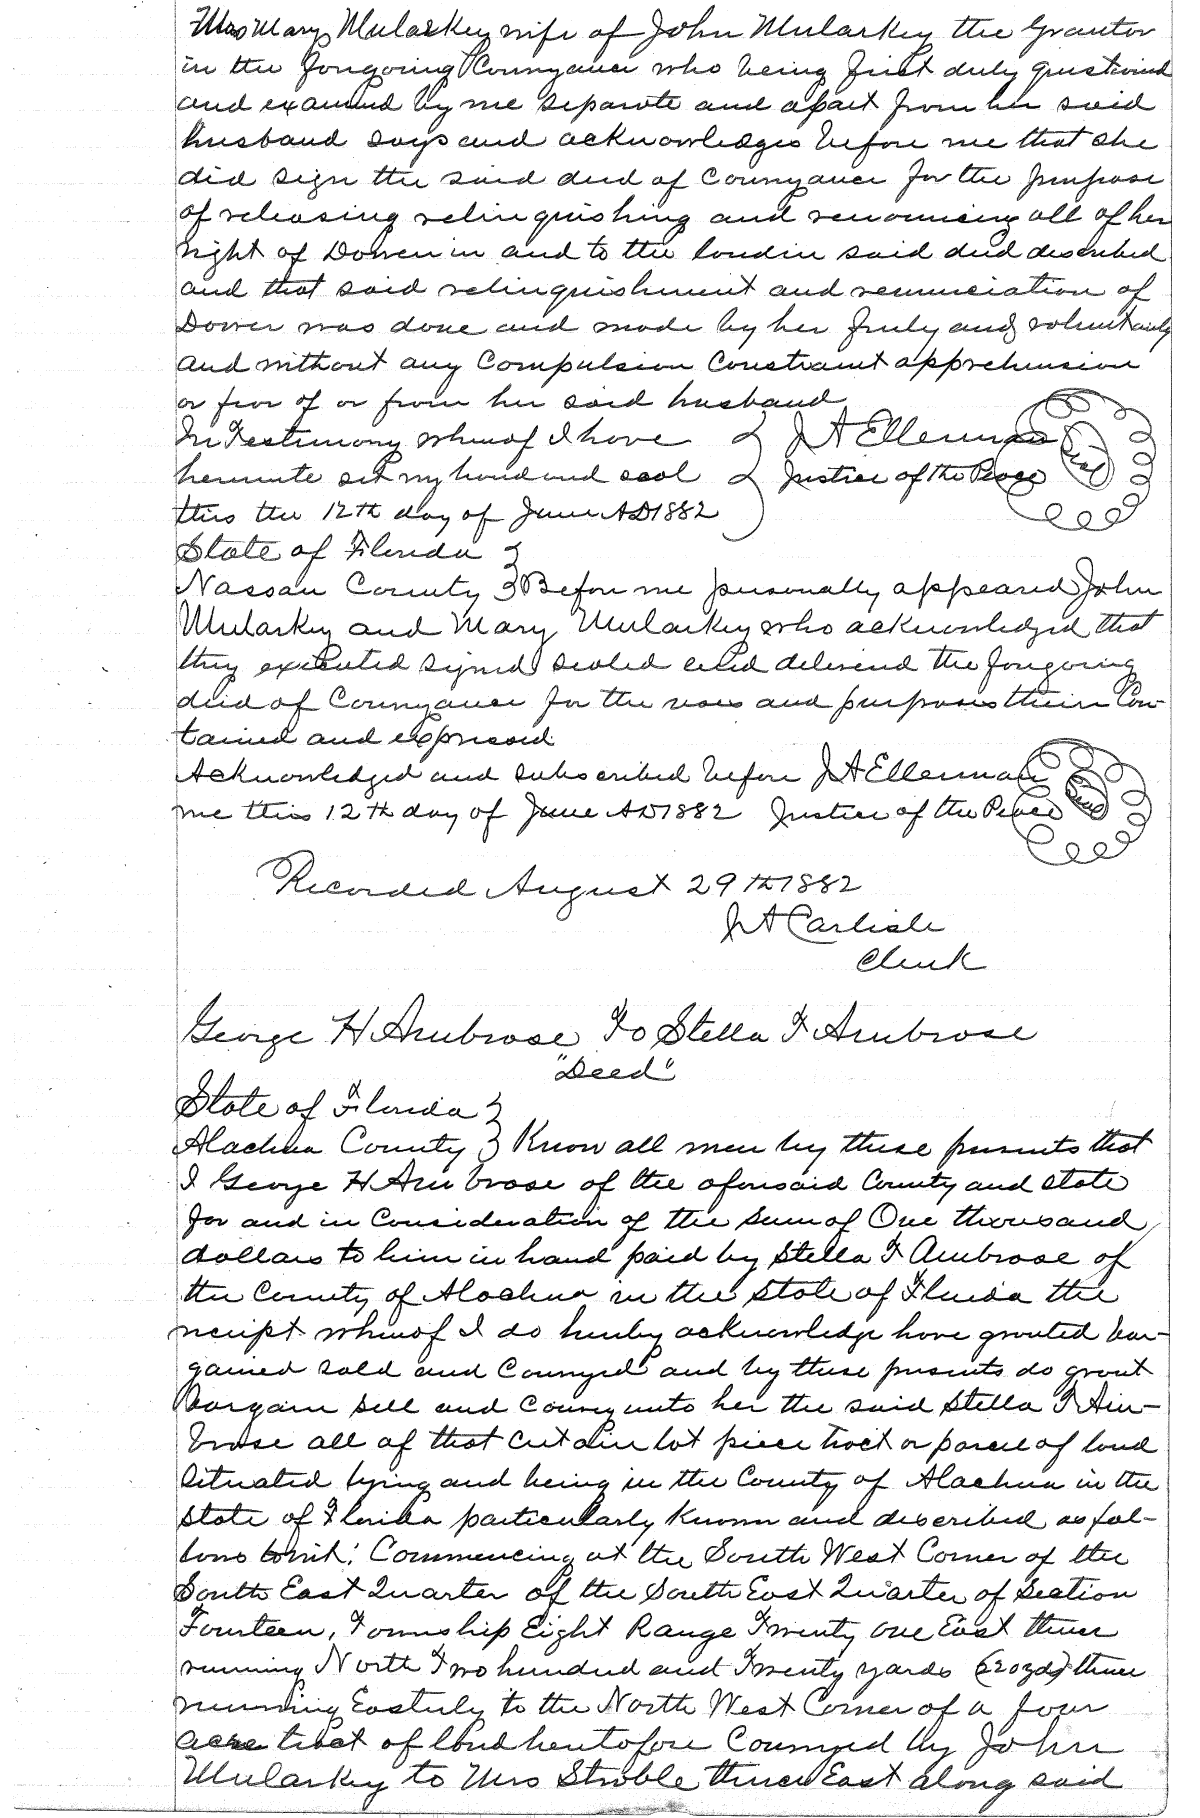 Mrs Mary Mularkey wife of John Mularkey the Grantor
in the forgoing Conveyance who being first duly questioned
and examined by me separate and apart from her said
husband says and acknowledges before me that she
did sign the said deed of Conveyance for the purpose
of releasing relinquishing and renouncing all of her
right of Dower in and to the land in said deed described
and that said relinquishment and renunciation of
Dower was done and made by her freely and voluntarily
and without any Compulsion Constraint apprehension
or fear of or from her said husband
In Testimony whereof I have } J A Ellerman Seal
hereunto set my hand and seal } Justice of the Peace
this the 12th day of June AD 1882
State of Florida }
Nassau County } Before me personally appeared John
Mularkey and Mary Mularkey who acknowledged that
they executed signed sealed and delivered the forgoing
deed of Conveyance for the uses and purposes therein Con-
tained and expressed
Acknowledged and subscribed before J A Ellerman Seal
me this 12th day of June AD 1882 Justice of the Peace
Recorded August 29th 1882
J A Carlisle
Clerk
George H Ambrose To Stella F Ambrose
"Deed"
State of Florida }
Alachua County } Know all men by these presents that
I George H Ambrose of the aforesaid County and state
for and in Consideration of the sum of One thousand
dollars to him in hand paid by Stella F Ambrose of
the County of Alachua in the State of Florida the
receipt whereof I do hereby acknowledge have granted bar-
gained sold and Conveyed and by these presents do grant
Bargain sell and Convey unto her the said Stella F Am-
brose all of that certain lot piece tract or parcel of land
situated lying and being in the County of Alachua in the
State of Florida particularly known and described as fol-
lows towit: Commencing at the South West Corner of the
South East Quarter of the South East Quarter of Section
Fourteen, Township Eight Range Twenty one East thence
running North Two hundred and Twenty yards (220 yds) thence
running Easterly to the North West Corner of a four
acre tract of land heretofore Conveyed by John
Mularkey to Mrs Stroble thence East along said